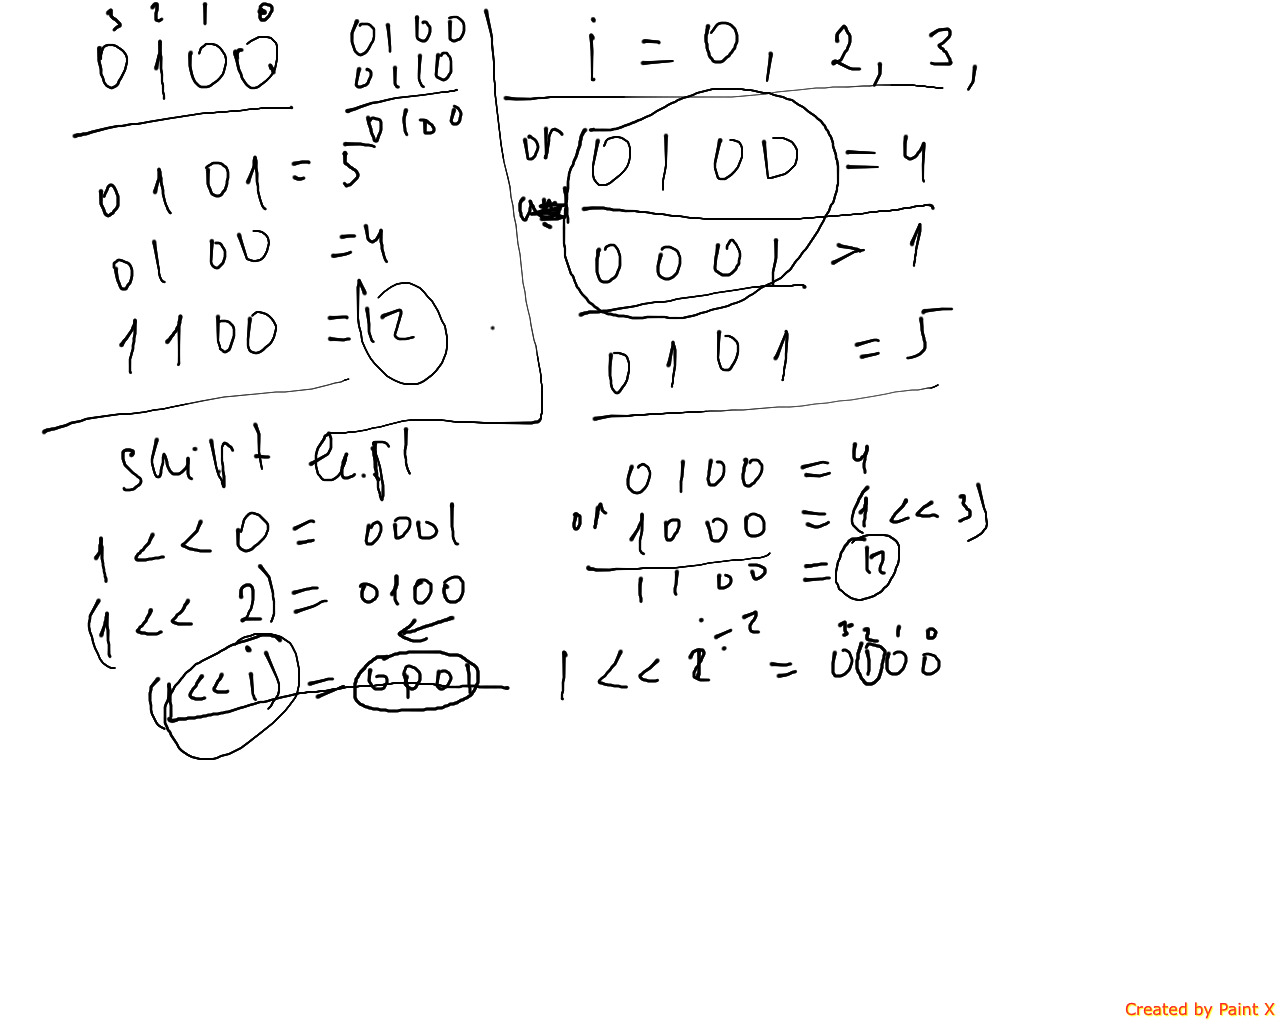 3 2 1 0
0100
0101 = 5
0100 = 4
1100 = 12
0100
0110
0100
i = 0, 2, 3,
or 0100 = 4
0001 > 1
0101 = 5
shift
1 << 0 = 0001
(1 << 2) = 0100
(1 << i) = 0001
0100 = 4
or 1000 = (1 << 3)
1100 = 12
2
3 2 1 0
1 << = 0100
Created by Paint X